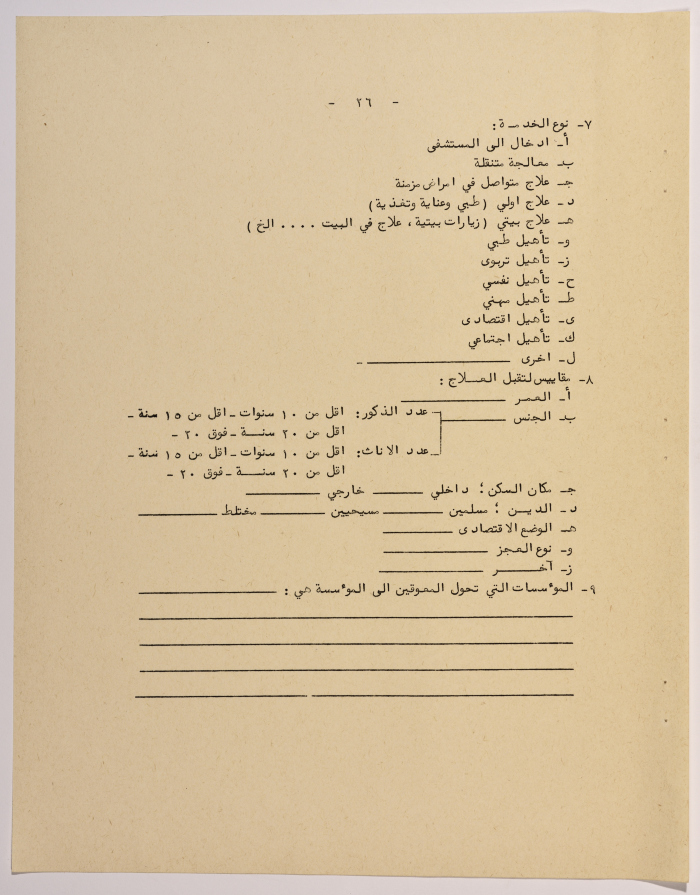 - ٢٦ -
٧- نوع الخدمة :
أ- ادخال الى المستشفى
ب- معالجة متنقلة
ج- علاج متواصل في امراض مزمنة
د- علاج اولي (طبي وعناية وتغذية)
هـ- علاج بيتي (زيارات بيتية، علاج في البيت .... الخ)
و- تأهيل طبي
ز- تأهيل تربوى
ح- تأهيل نفسي
ط- تأهيل مهني
ى- تأهيل اقتصادى
ك- تأهيل اجتماعي
ل- اخرى ــــــــــــ
٨- مقاييس لتقبل العـلاج :
أ- العمر ــــــــــــ
ب- الجنس ــــــــــــ عدد الذكور: اقل من ١٠ سنوات - اقل من ١٥ سنة -
اقل من ٢٠ سنـة - فوق ٢٠ -
عدد الاناث: اقل من ١٠ سنوات - اقل من ١٥ سنة -
اقل من ٢٠ سنـة - فوق ٢٠ -
ج- مكان السكن؛ داخلي ــــــــــــ خارجي ــــــــــــ
د- الديـن ؛ مسلمين ــــــــــــ مسيحيين ــــــــــــ مختلط ــــــــــــ
هـ- الوضع الاقتصادى ــــــــــــ
و- نوع العجز ــــــــــــ
ز- آخـــر ــــــــــــ
٩- المؤسسات التي تحول المعوقين الى المؤسسة هي : ــــــــــــ